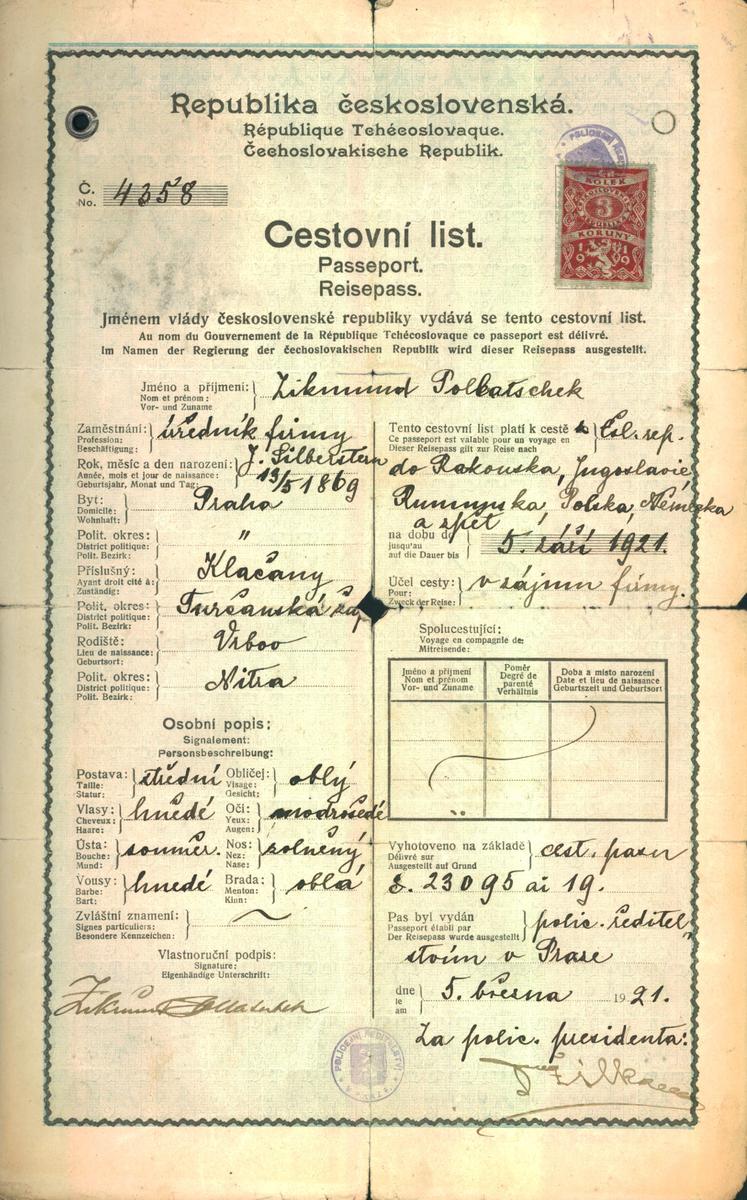 Republika československá.
République Tchécoslovaque.
Čechoslovakische Republik.
Č. 4358
No.
POLICEJNÍ
KOLEK
3
KORUNY
1919
Cestovní list.
Passeport.
Reisepass.
Jménem vlády československé republiky vydává se tento cestovní list.
Au nom du Gouvernement de la République Tchécoslovaque ce passeport est délivré.
Im Namen der Regierung der čechoslovakischen Republik wird dieser Reisepass ausgestellt.
Jméno a příjmení: Zikmund Pollatschek
Nom et prénom:
Vor- und Zuname
Zaměstnání: úředník firmy
Profession:
Beschäftigung:
J. Silberstern
Rok, měsíc a den narození: 13/5 1869
Année, mois et jour de naissance:
Geburtsjahr, Monat und Tag:
Byt: Praha
Domicile:
Wohnhaft:
Polit. okres: "
District politique:
Polit. Bezirk:
Příslušný: Klačany
Ayant droit cité à:
Zuständig:
Polit. okres: Turčanská žup
District politique:
Polit. Bezirk:
Rodiště: Vrbov
Lieu de naissance:
Geburtsort:
Polit. okres: Nitra
District politique:
Polit. Bezirk:
Osobní popis:
Signalement:
Personsbeschreibung:
Postava: střední Obličej: oblý
Taille: Visage:
Statur: Gesicht:
Vlasy: hnědé Oči: modrošedé
Cheveux: Yeux:
Haare: Augen:
Ústa: souměr. Nos:
Bouche: Nez:
Mund: Nase:
Vousy: hnědé Brada: oblá
Barbe: Menton:
Bart: Kinn:
Zvláštní znamení:
Signes particuliers:
Besondere Kennzeichen:
Vlastnoruční podpis:
Signature:
Eigenhändige Unterschrift:
Zikmund Pollatschek
Tento cestovní list platí k cestě z Čsl. rep.
Ce passeport est valable pour un voyage en
Dieser Reisepass gilt zur Reise nach
do Rakouska, Jugoslavie,
Rumunska, Polska, Německa
a zpět
na dobu do 5. září 1921.
jusqu'au
auf die Dauer bis
Účel cesty: v zájmu firmy.
Pour:
Zweck der Reise:
Spolucestující:
Voyage en compagnie de:
Mitreisende:
Jméno a příjmení Poměr Doba a místo narození
Nom et prénom Degré de parenté Date et lieu de naissance
Vor- und Zuname Verhältnis Geburtszeit und Geburtsort
Vyhotoveno na základě cest. pasu
Délivré sur
Ausgestellt auf Grund
č. 23095 ai 19.
Pas byl vydán polic. ředitel-
Passeport établi par
Der Reisepass wurde ausgestellt
stvím v Praze
dne 5. března 1921.
le
am
Za polic. presidenta:
POLICEJNÍ ŘEDITELSTVÍ